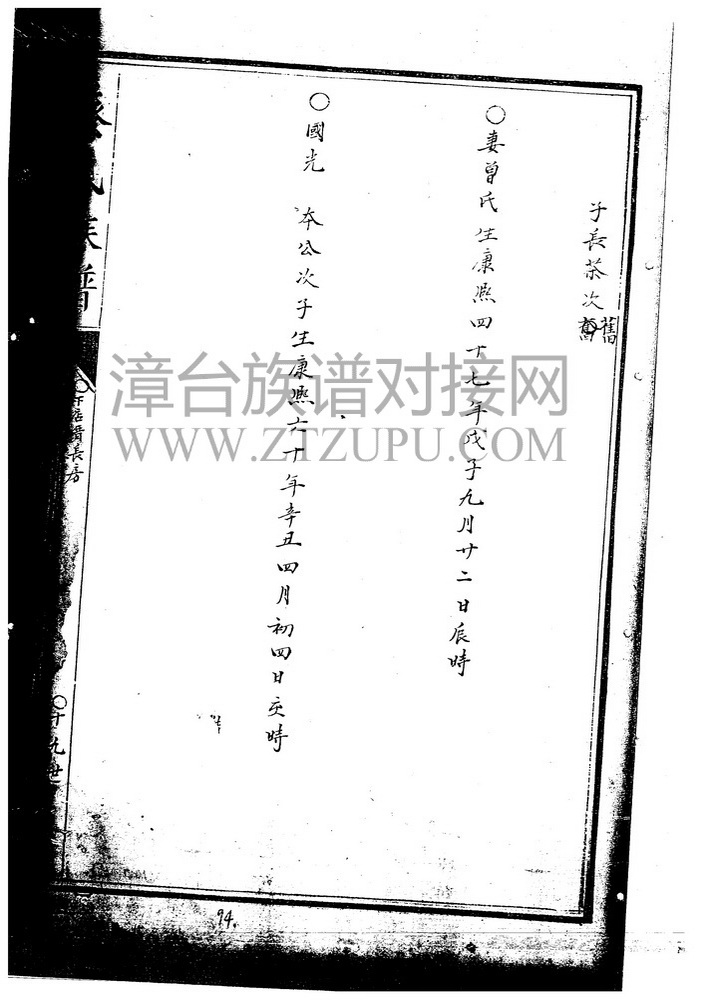 子長茶次舊
○妻曾氏生康熙四十七年戊子九月廿二日辰時
○國光 本公次子生康熙六十年辛丑四月初四日亥時
氏族譜
長房
○十九世
94.
漳台族谱对接网
WWW.ZTZUPU.COM